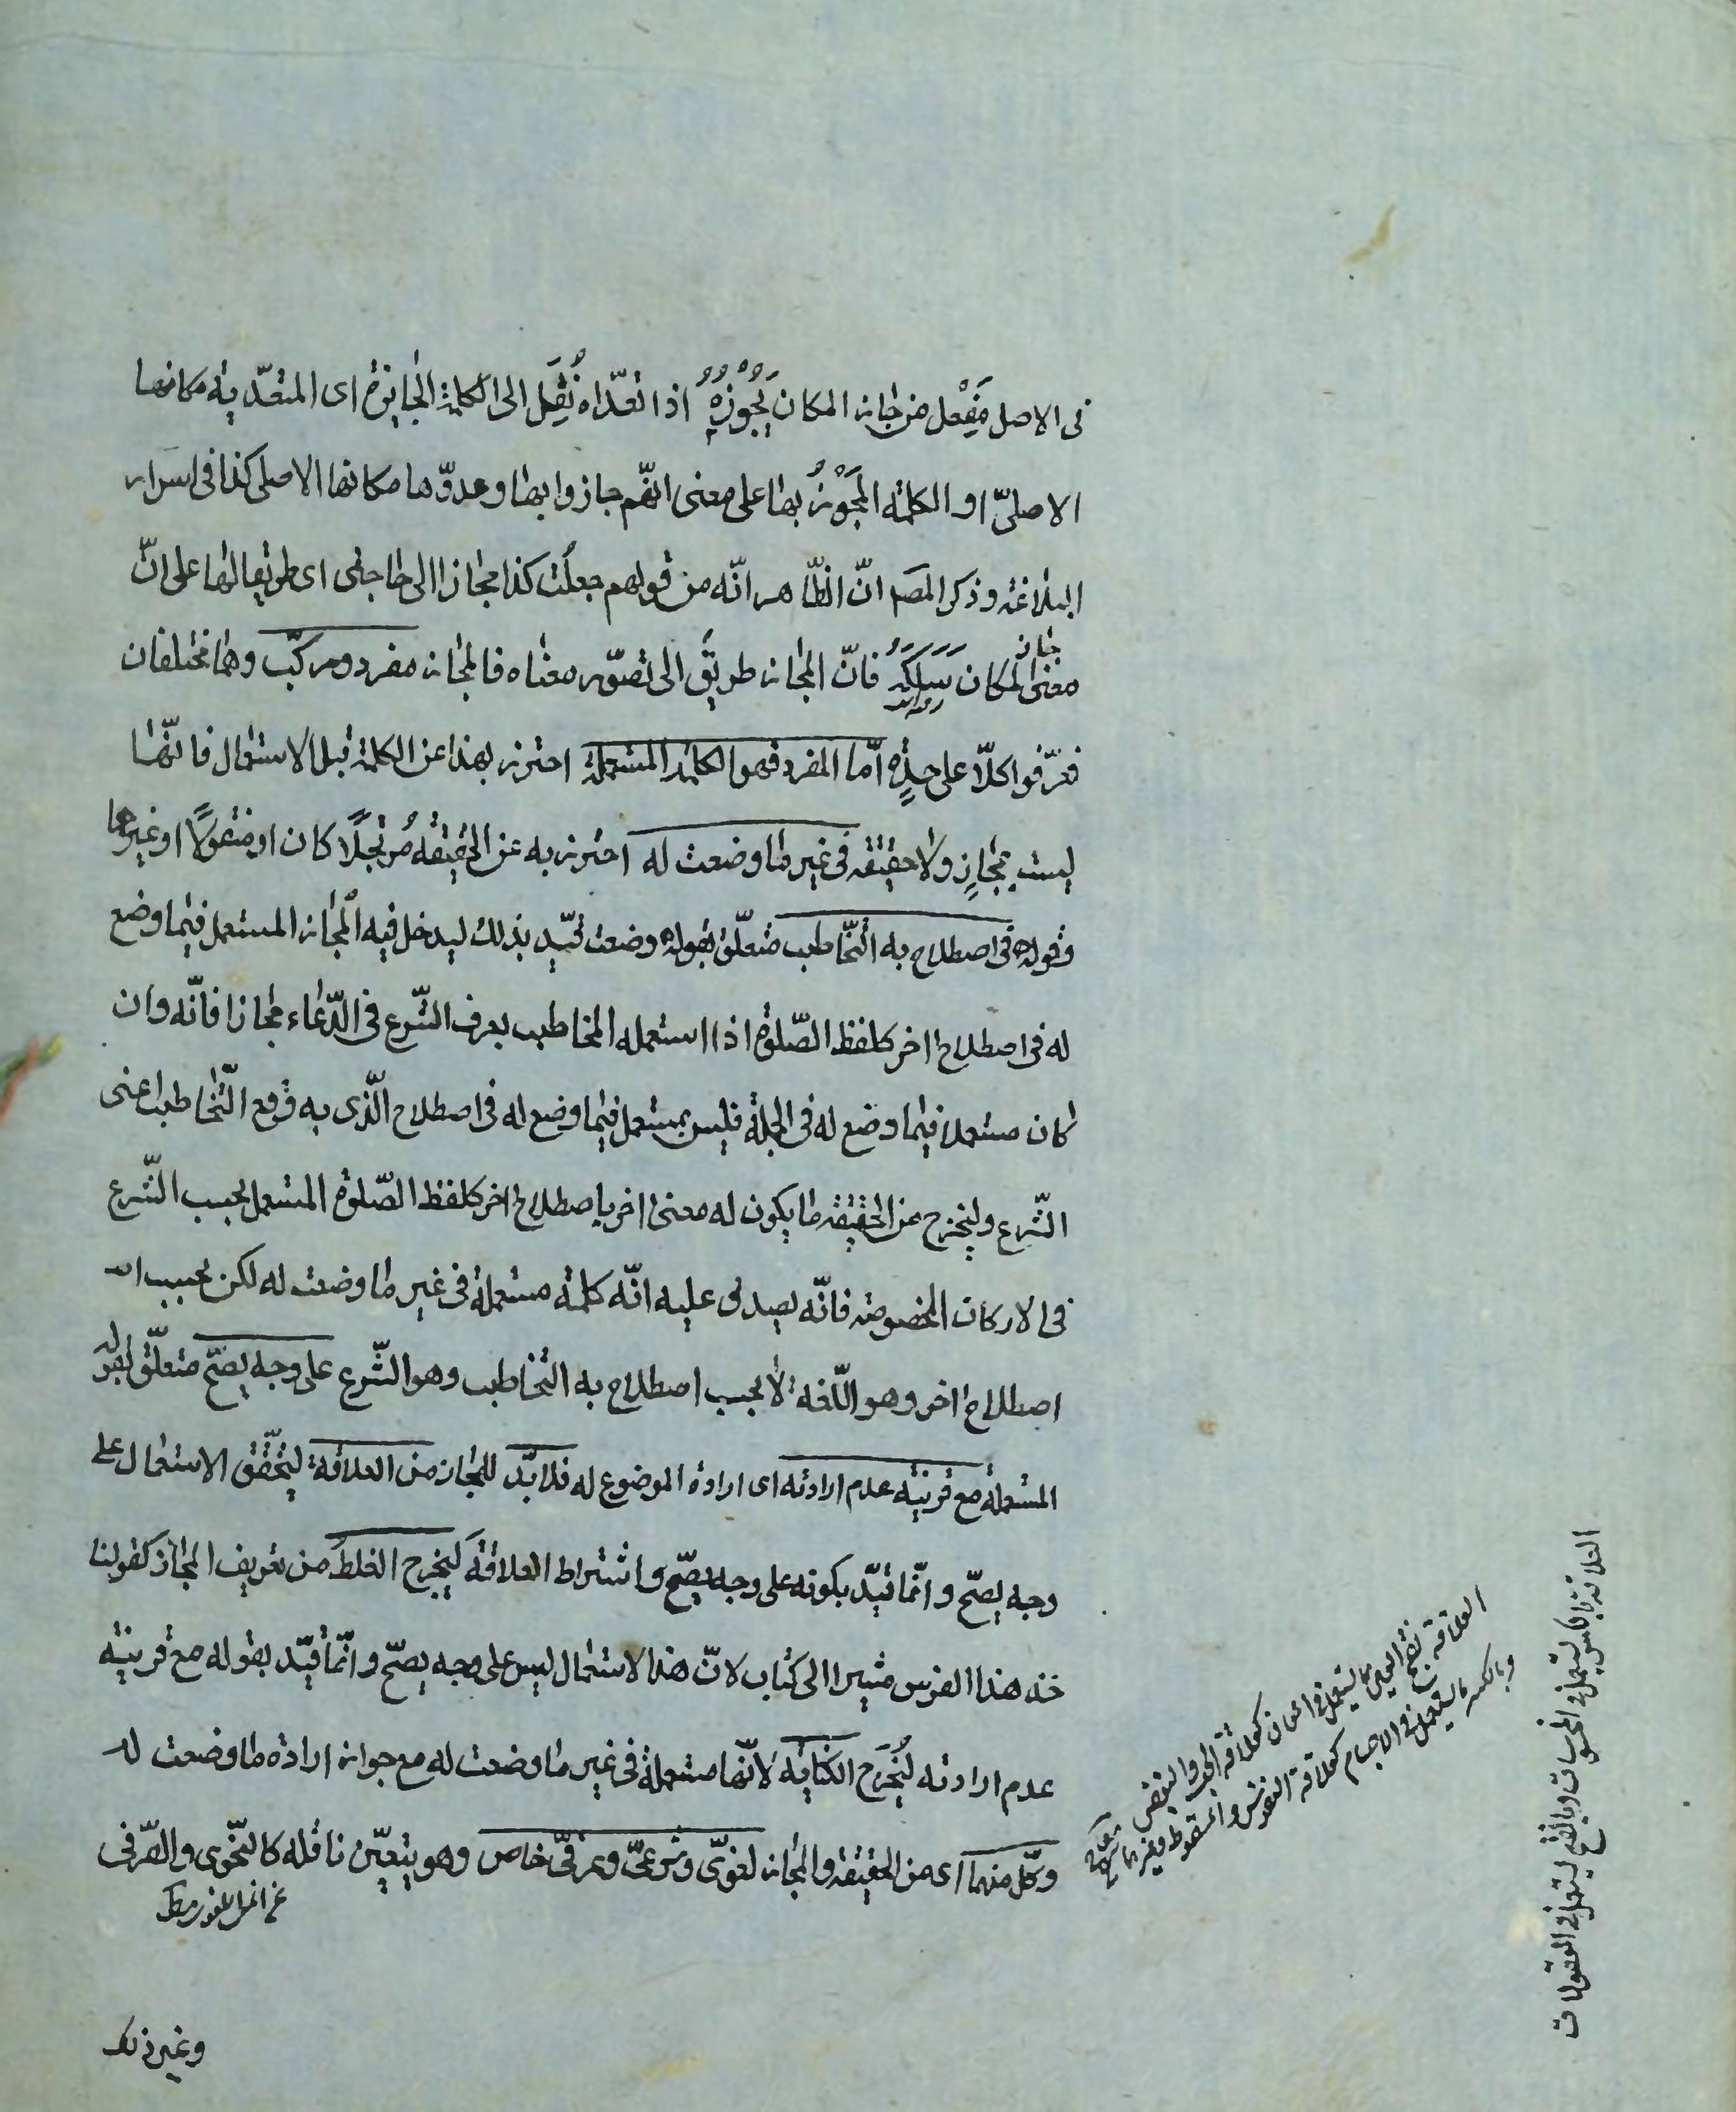 فى الاصل مَفْعل من جاز المكان يَجُوْزُهُ اذا تعدّاه نُقِلَ الى الكلمة الجايزة اى المتعدّيه مكانها
الاصلىّ او الكلمة المَجَوْزُ بها على معنى انّهم جازوا بها وعدوّها مكانها الاصلى كذا فى اسرار
البلاغة وذكر المصـ انّ الظّاهر انّه من قولهم جعلت كذا مجازا الى حاجتى اى طريقا لها على انّ
معنى جاز المكان سَلَكَهُ فانّ المجاز طريق الى تصوّر معناه فالمجاز مفرد ومركّب وهما مختلفان
فعرّفوا كلّا على حِدٍة امّا المفرد فهو الكلمة المستعملة احترز بهذا عن الكلمة قبل الاستعمال فانّها
ليست بمجازٍ ولا حقيقة فى غير ما وضعت له احترز به عن الحقيقة مُرتجلًا كان او منقولًا او غيرهما
وقوله فى اصطلاح به التّخاطب متعلّق بقوله وضعت قيّد بذلك ليدخل فيه المجاز المستعمل فيما وضع
له فى اصطلاح اخر كلفظ الصّلوة اذا استعمله المخاطب بعرف الشّرع فى الدّعاء مجازا فانّه وان
كان مستعملا فيما وضع له فى الجملة فليس بمستعمل فيما وضع له فى اصطلاح الّذى به وقع التّخاطب اعنى
الشّرع وليخرج عن الحقيقة ما يكون له معنى اخر باصطلاح اخر كلفظ الصّلوة المستعمل بحسب الشّرع
فى الاركان المخصوصة فانّه يصدق عليه انّه كلمة مستعملة فى غير ما وضعت له لكن بحسب
اصطلاح اخر وهو اللّغة لا بحسب اصطلاح به التخاطب وهو الشّرع على وجه يصحّ متعلّق بقوله
المستعملة مع قرينة عدم ارادته اى ارادة الموضوع له فلا بدّ للمجاز من العلاقة ليتحقّق الاستعمال على
وجه يصحّ وانّما قيّد بكونه على وجه يصحّ واشتراط العلاقة ليخرج الغلط من تعريف المجاز كقولنا
خذ هذا الفرس مشيرا الى كتاب لانّ هذا الاستعمال ليس على وجه يصحّ وانّما قيّد بقوله مع قرينة
عدم ارادته لُتخرَج الكناية لانّها مستعملة فى غير ما وضعت له مع جواز ارادة ما وضعت له
وكلّ منهما اى من الحقيقة والمجاز لغوىّ وشرعىّ وعرفىّ خاص وهو يتعيّن ناقله كالنّحوى والصّرفى
وغير ذلك
العلاقة بفتح العين يستعمل فى المعانى كعلاقة الحب والبغض
وبالكسر يستعمل فى الاجسام كعلاقة القوس والسوط وغيرهما
العلاقة بالكسر يستعمل فى المحسوسات وبالفتح يستعمل فى المعقولات